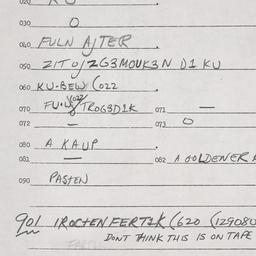 020
030 O
040 FULN AJTER
050 ZITOJZG3MOUK3N D1 KU
060 KU-BEW (022
070 TROG3D1K 071 —
072 — 073 O
080 A KAUP
081 — 082 A GOLDENER A
090 PASTEN
901 IROCTENFERT1K (620 (129080
DONT THINK THIS IS ON TAPE